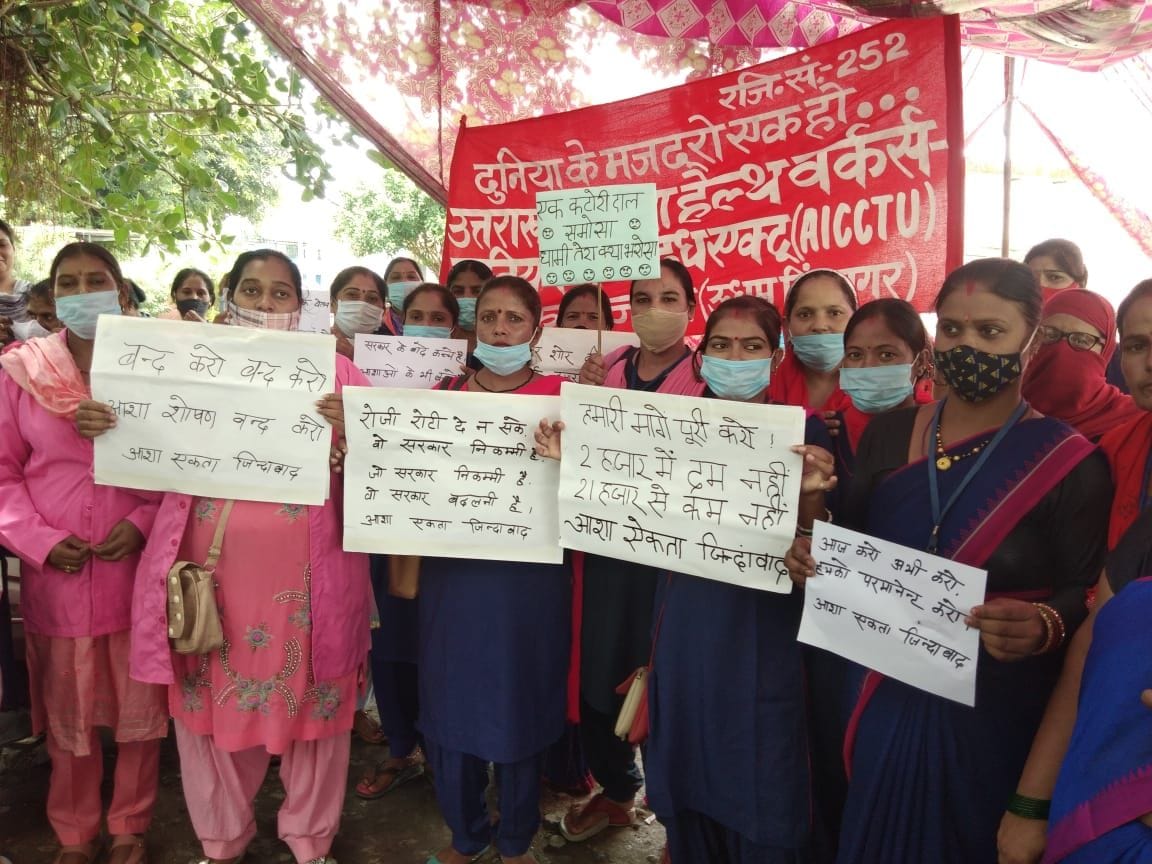 रजि.सं.-252
दुनिया के मजदूरो एक हो...
हैल्थ वर्कर्स-
एक्टू (AICCTU)
एक कटोरी दाल
समोसा
धामी तेरा क्या भरोसा
बन्द करो बन्द करो
आशा शोषण बन्द करो
आशा एकता जिन्दाबाद
सरकार के
आशाओं के भी
शोर करो
रोजी रोटी दे न सके
वो सरकार निकम्मी है.
जो सरकार निकम्मी है.
वो सरकार बदलनी है।
आशा एकता जिन्दाबाद
हमारी मांगे पूरी करो!
2 हजार में दम नहीं
21 हजार से कम नहीं
आशा ऐकता जिन्दांबाद
आज करो अभी करो,
हमको परमानेन्ट करो
आशा एकता जिन्दाबाद